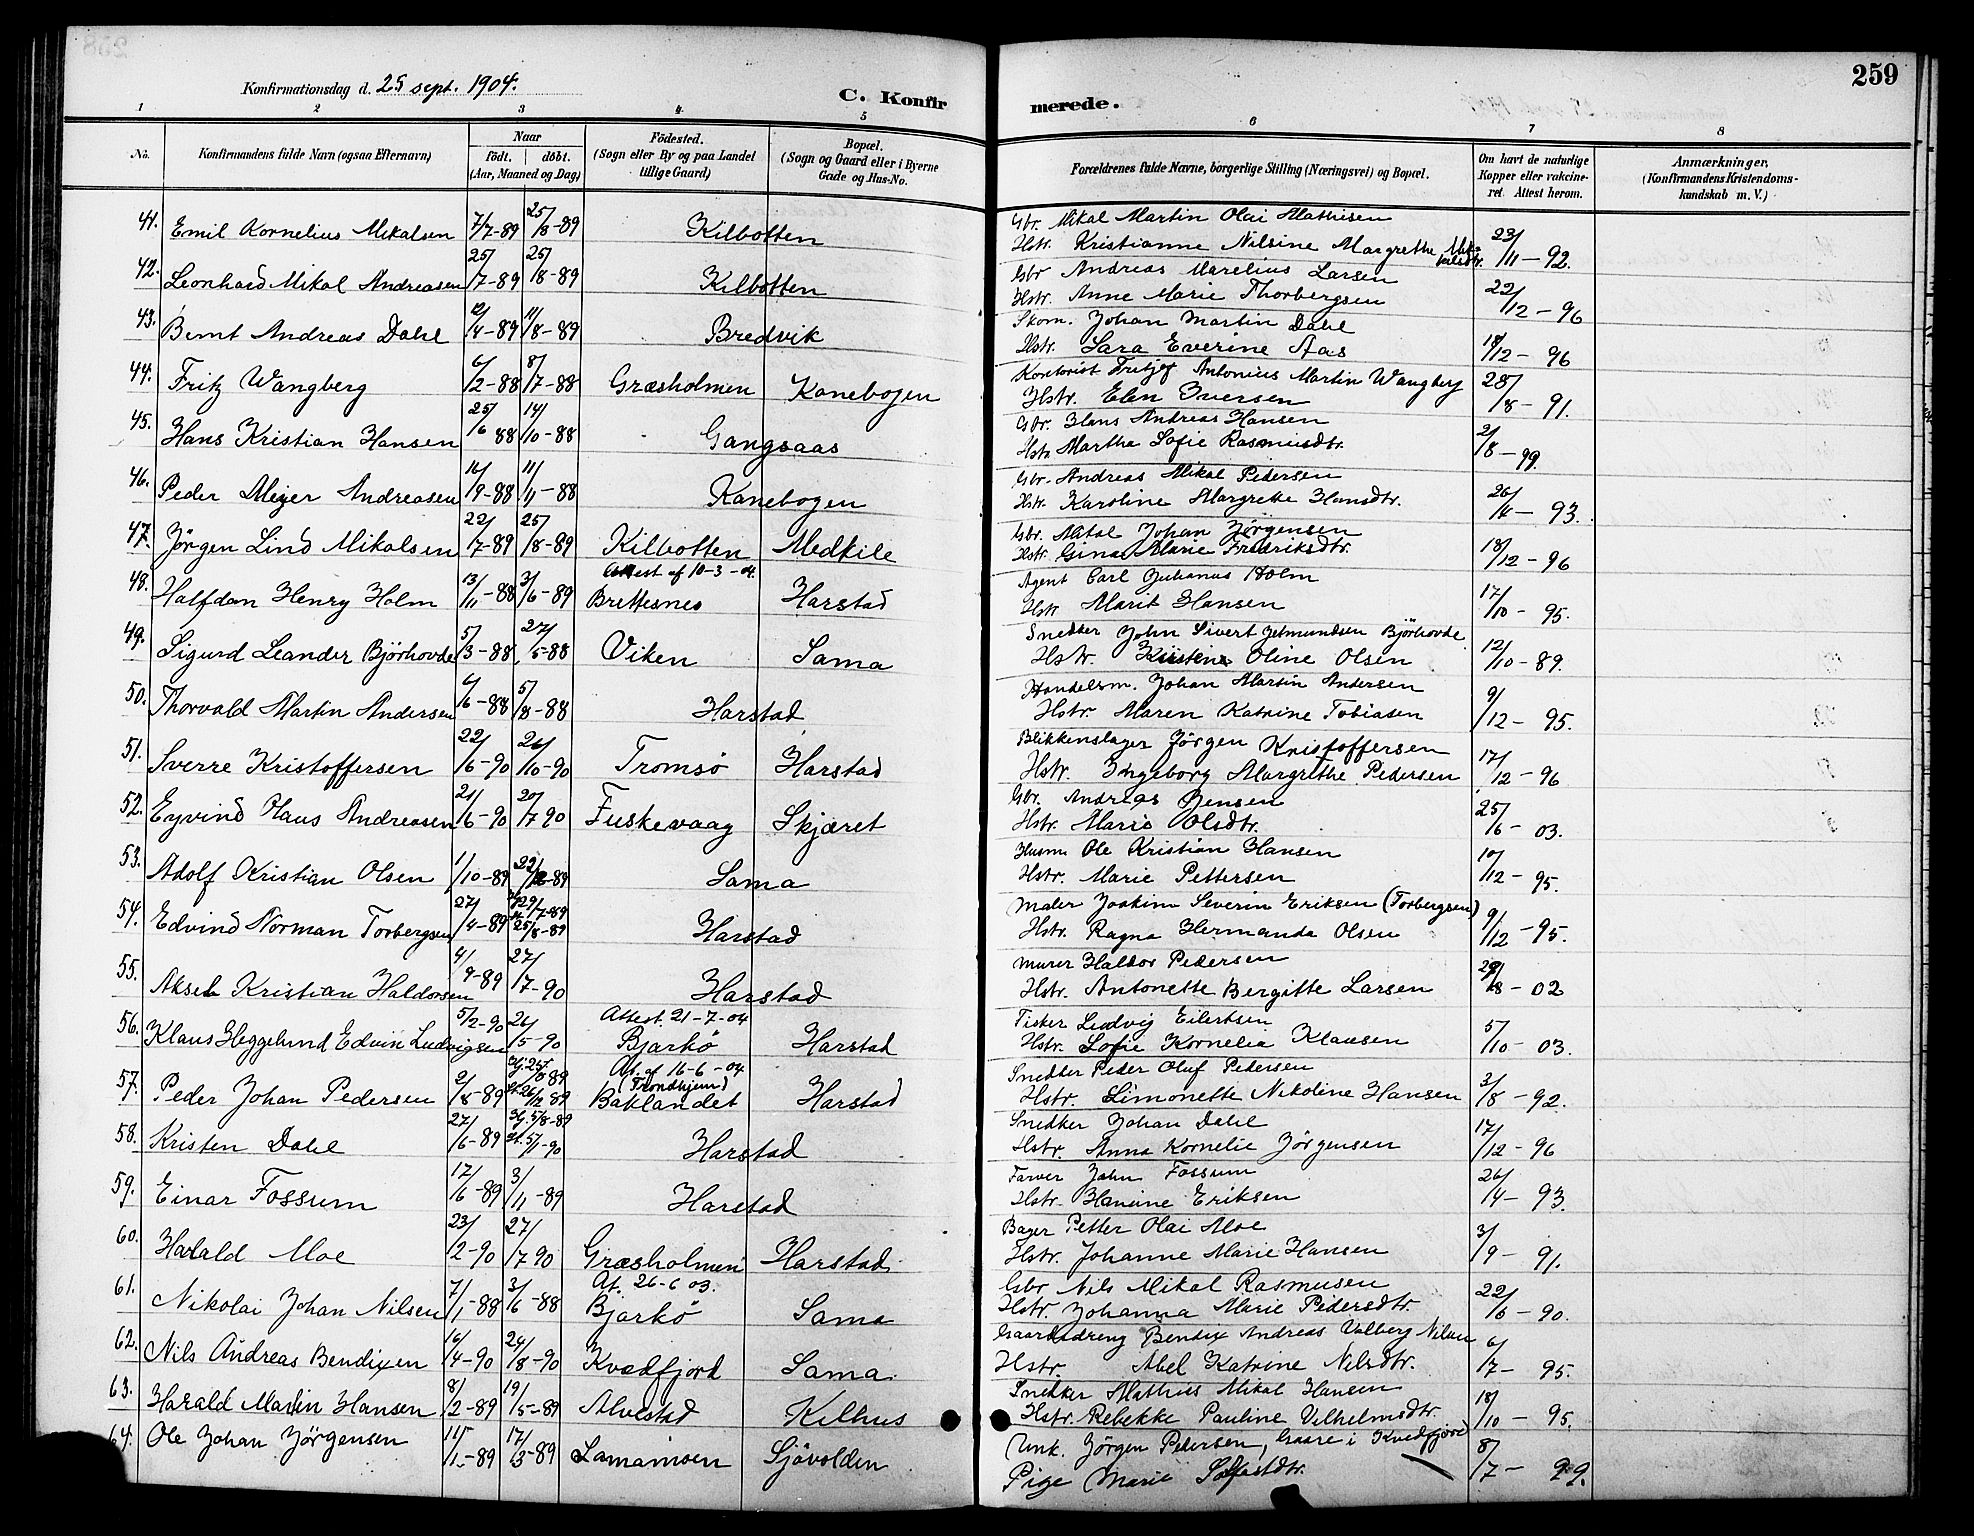 259
Konfirmationsdag d. 25 sept. 1904.
C. Konfirmerede.
1 2 3 4 5 6 7 8
No. Konfirmandens fulde Navn (ogsaa Efternavn) Naar født. døbt. (Aar, Maaned og Dag) Fødested. (Sogn eller By og paa Landet tillige Gaard) Bopæl. (Sogn og Gaard eller i Byerne Gade og Hus-No. Forældrenes fulde Navne, borgerlige Stilling (Næringsvei) og Bopæl. Om havt de naturlige Kopper eller vakcineret. Attest herom. Anmærkninger, (Konfirmandens Kristendomskundskab m. V.)
41. Emil Kornelius Mikalsen 7/7-89 25/8-89 Kilbotten Gbr. Mikal Martin Olai Mathisen
Hstr. Kristianne Nilsine Margrethe 23/11-92.
42. Leonhard Mikal Andreasen 25/7-89 25/8-89 Kilbotten Gbr Andreas Marelius Larsen
Hstr. Anne Marie Thorbergsen 22/12-96
43. Bernt Andreas Dahl 12/4-89 11/8-89 Bredvik Skom. Johan Martin Dahl
Hstr. Sara Everine Aas 18/12-96
44. Fritz Wangberg 6/2-88 8/7-88 Græsholmen Kanebogen Kontorist Fritjof Antonius Martin Wangberg
Hstr. Elen Iversen 28/8-91.
45. Hans Kristian Hansen 25/6 88 14/10-88 Gangsaas Gbr. Hans Andreas Hansen
Hstr Martha Sofie Rasmusdtr. 2/8-99.
46. Peder Meyer Andreasen 16/9-88 11/11-88 Kanebogen Gbr. Andreas Mikal Pedersen
Hstr. Karoline Margrethe Hansdtr. 26/4-93.
47. Jörgen Lind Mikalsen 22/7-89 25/8-89 Kilbotten Medkile Gbr. Mikal Johan Jörgensen
Hstr. Gina Marie Fredriksdtr. 18/12-96
48. Halfdan Henry Holm 13/11-88 3/6-89 Attest af 10-3-04. Brettesnes Harstad Agent Carl Johanus Holm
Hstr Marit Hansen 17/10-95.
49. Sigurd Leander Bjørhovde 5/3-88 27/5-88 Viken Sama Snedker John Sivert Zetmundsen Bjørhovde.
Hstr. Kristine Oline Olsen 12/10-89.
50. Thorvald Martin Andersen 6/6-88 5/8-88 Harstad Handelsm. Johan Martin Andersen
Hstr. Maren Katrine Tobiasen 9/12-95.
51. Sverre Kristoffersen 22/6-90 26/10-90 Tromsø Harstad Blikkenslager Jörgen Kristoffersen
Hstr. Ingeborg Margrethe Pedersen 17/12-96
52. Eyvind Olaus Andreasen 21/6-90 20/7 90 Fuskevaag Skjæret Gbr. Andreas Jensen
Hstr. Marie Olsdtr. 25/6-03.
53. Adolf Kristian Olsen 1/10-89 22/12-89 Sama Husm Ole Kristian Hansen
Hstr. Marie Pettersen 10/12-95.
54. Edvind Norman Torbergsen 27/4-89 29/7-89 25/8-89 Harstad Maler Joakim Severin Eriksen (Torbergsen)
Hstr. Ragna Hermanda Olsen 9/12-95.
55. Aksel Kristian Haldorsen 4/9-89 27/7-90 Harstad Murer Haldor Pedersen
Hstr. Antonette Bergitte Larsen 29/8-02
56. Klaus Heggelund Edvin Ludvigsen 5/2-90 26/5-90 Attest. 21-7-04 Bjarkö Harstad Fisker Ludvig Eilertsen
Hstr. Sofie Kornelia Klausen 5/10-03.
57. Peder Johan Pedersen 2/8-89 Hj. 25/8 89 26/12 89 At. af 16-6-04 (Trondhjem) Baklandet Harstad Snedker Peder Oluf Pedersen
Hstr. Simonette Nikoline Hansen 3/8-92.
58. Kristen Dahl 27/6-89 Hj. 5/8-89 5/1-90 Harstad Snedker Johan Dahl
Hstr. Anna Kornelie Jörgensen 17/12-96
59. Einar Fossum 17/6-89 3/11-89 Harstad Farver John Fossum
Hstr. Hansine Eriksen 26/4-93.
60. Harald Moe 23/2-90 27/7 90 Græsholmen Harstad Bager Petter Olai Moe
Hstr. Johanne Marie Hansen 3/9-91.
61. Nikolai Johan Nilsen 7/1-88 3/6-88 At. 26-6 03. Bjarkö Sama Gbr Nils Mikal Rasmusen
Hstr. Johanna Marie Pedersdtr. 22/6-90.
62. Nils Andreas Bendixen 6/4-90 24/8-90 Kvædfjord Sama Gaardsdreng Bendix Andreas Valberg Nilsen
Hstr. Abel Katrine Nilsdtr. 6/7-95.
63. Harald Martin Hansen 8/2-89 19/5-89 Alvestad Kilhus Snedker Mathias Mikal Hansen
Hstr. Rebekke Pauline Vilhelmsdtr. 18/10-95.
64. Ole Johan Jörgensen 11/1-89 17/3-89 Samamoen Sjövolden Unk. Jörgen Pedersen, Gaare i Kvedfjord
Pige Marie 8/7-99.